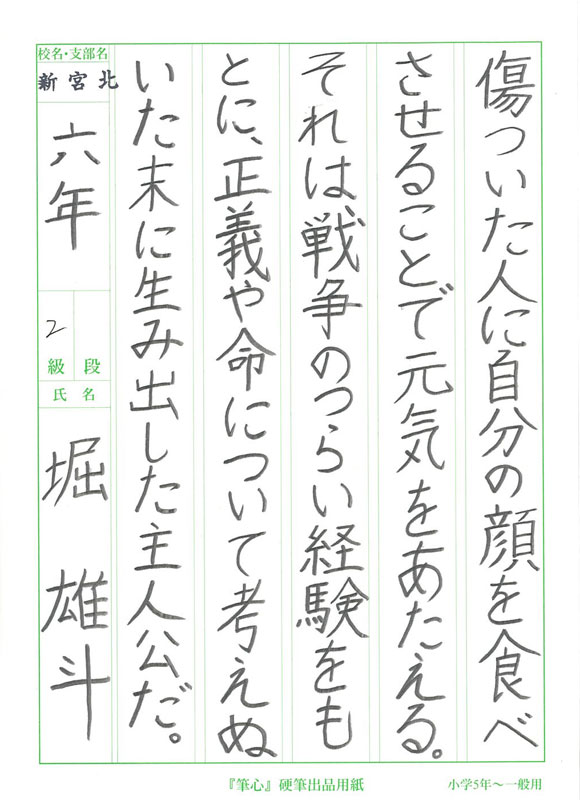 傷ついた人に自分の顔を食べ
させることで元気をあたえる。
それは戦争のつらい経験をも
とに、正義や命について考えぬ
いた末に生み出した主人公だ。
校名・支部名
新宮北
六年
2
級 段
氏名
堀 雄斗
『筆心』硬筆出品用紙
小学5年〜一般用